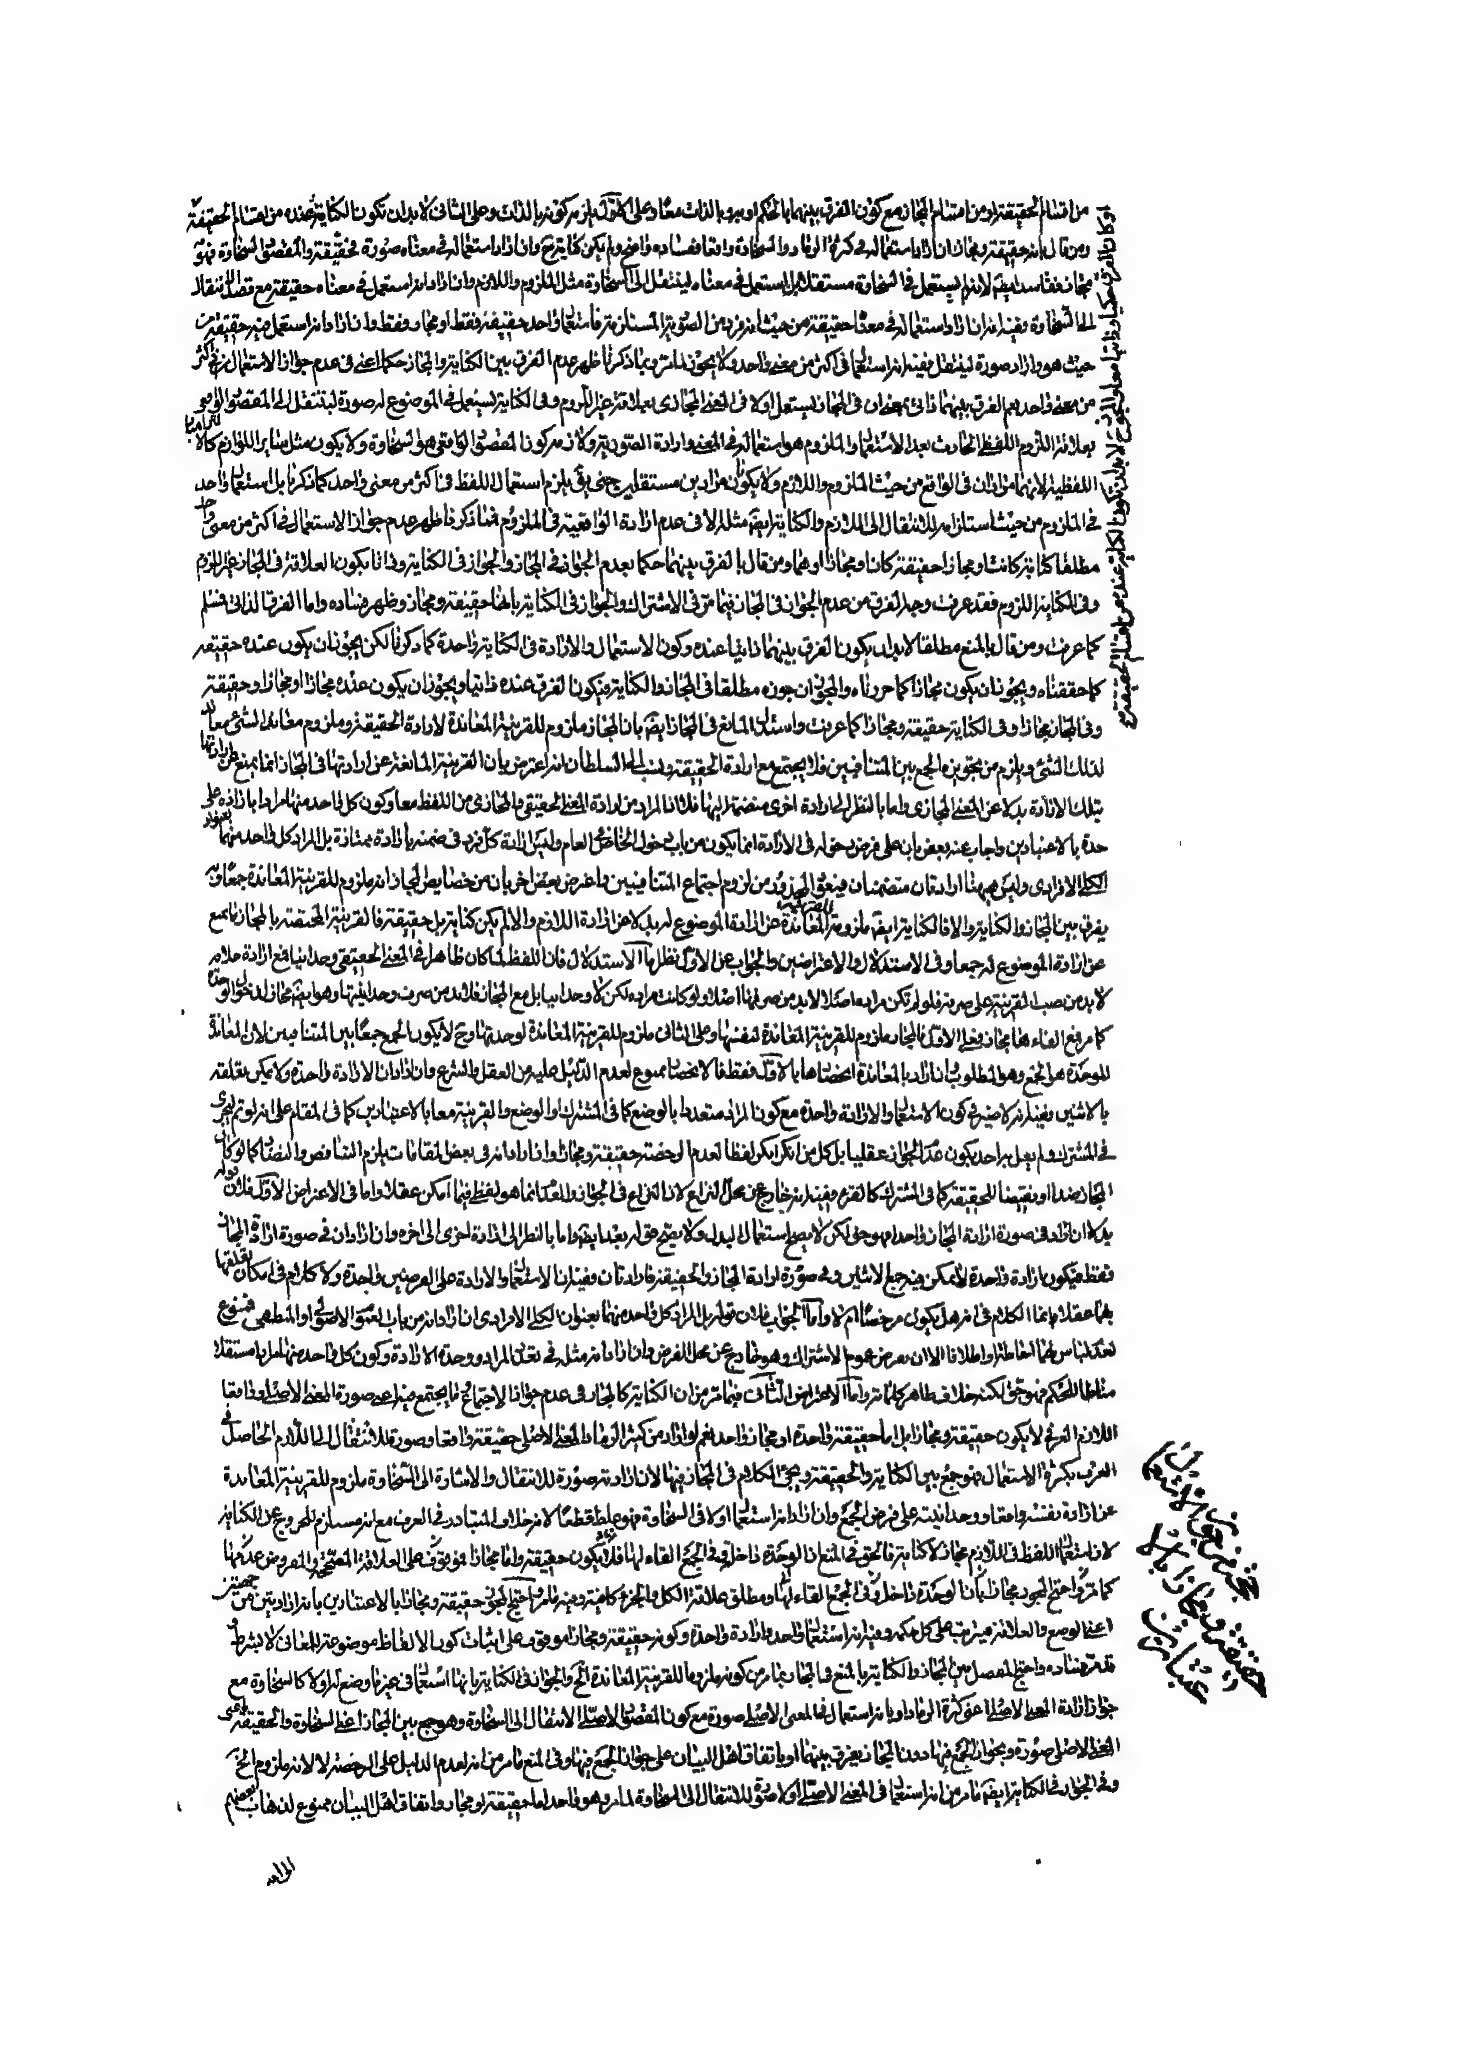 من اقسام الحقيقة او من اقسام المجاز مع كون الفرق بينهما بالحكم او به وبالذات معا وعلى الاول يلزم كونه بالذات وعلى الثانى لا بد ان تكون الكناية عنده من اقسام الحقيقة
ومن قال بانه حقيقة ومجاز ان اراد استعماله فى كثرة الرماد والسخاوة واقعا ففساده واضح ولم يكن كناية وان اراد استعماله فى معناه صورة فحقيقة والمقصود السخاوة فهو
مجاز ففاسد ايضا لانه لم يستعمل فى السخاوة مستقلا بل استعمل فى معناه لينتقل الى السخاوة مثل الملزوم واللازم وان اراد انه استعمل فى معناه حقيقة مع قصد الانتقال
الى السخاوة ففيه انه ان اراد استعماله فى معناه حقيقة من حيث انه فرد من الصورة المستلزمة فاستعمال واحد حقيقة فقط او مجاز فقط وان اراد انه استعمل فيه حقيقة من
حيث هو واراد صورة لينتقل ففيه انه استعمال فى اكثر من معنى واحد ولا يجوز لما مر وبما ذكرنا ظهر عدم الفرق بين الكناية والمجاز حكما اعنى فى عدم جواز الاستعمال فى اكثر
من معنى واحد نعم الفرق بينهما ذاتى بمعنى ان فى المجاز يستعمل اولا فى المعنى المجازى بعلاقة غير اللزوم وفى الكناية يستعمل فى الموضوع له صورة لينتقل الى المقصود الواقعى
بعلاقة اللزوم اللفظى الحادث بعد الاستعمال والملزوم هو استعماله فى المعنى وارادة الصورية ولازمه كون المقصود الواقعى هو السخاوة ولا يكون مثل ساير اللوازم كالا
اللفظية لانهما مرادان فى الواقع من حيث الملزوم واللازم ولا يكونان مرادين مستقلا يرجى يق يلزم استعمال اللفظ فى اكثر من معنى واحد كما ذكرنا بل استعمال واحد
فى الملزوم من حيث استلزامه للانتقال الى اللازم والكناية ايضا مثله الا فى عدم ارادة الواقعية فى الملزوم فبما ذكرنا ظهر عدم جواز الاستعمال فى اكثر من معنى واحد
مطلقا كناية كانت او مجازا حقيقة كان او مجازا او هما ومن قال بالفرق بينهما حكما بعدم الجواز فى المجاز والجواز فى الكناية وذاتا بكون العلاقة فى المجاز غير اللزوم
وفى الكناية اللزوم فقد عرفت وجه الفرق من عدم الجواز فى المجاز فيما مر فى الاشتراك والجواز فى الكناية بانها حقيقة ومجاز وظهر فساده واما الفرق الذاتى فمسلم
كما عرفت ومن قال بالمنع مطلقا لا بد ان يكون الفرق بينهما ذاتيا عنده وكون الاستعمال والارادة فى الكناية واحدة كما ذكرنا لكن يجوز ان يكون عنده حقيقة
كما حققناه ويجوز ان يكون مجازا كما حررناه والمجوز ان جوزه مطلقا فى المجاز والكناية فيكون الفرق عنده ذاتيا ويجوز ان يكون عنده مجازا او مجازا وحقيقة
وفى المجاز مجازا وفى الكناية حقيقة ومجازا كما عرفت واستدل المانع فى المجاز ايضا بان المجاز ملزوم للقرينة المعاندة لارادة الحقيقة وملزوم معاند الشئ معاند
لذلك الشئ ويلزم من تجويزه الجمع بين المتنافيين فلا يجتمع مع ارادة الحقيقة ونسب الى السلطان انه اعترض بان القرينة المانعة عن ارادتها فى المجاز انما يمنع عن ارادتها
بتلك الارادة بدلا عن المعنى المجازى واما بالنظر الى ارادة اخرى منضمة اليها فلا لان المراد من ارادة المعنى الحقيقى والمجازى من اللفظ معا وكون كل واحد منهما مرادا بارادة على
حدة بالاعتبارين واجاب عنه بعض بان على فرض دخوله فى الارادة انما يكون من باب دخول الخاص فى العام وليس ارادة كل فرد فى ضمنه بارادة ممتازة بل المراد كل واحد منهما بعنوان
الكلى الافرادى وليس ههنا ارادتان متضمنتان فيعود المحذور من لزوم اجتماع المتنافيين واعترض بعض اخر بان من خصايص المجاز انه ملزوم للقرينة المعاندة جمعا وبه
يفرق بين المجاز والكناية والا فالكناية ايضا ملزومة للقرينة المعاندة عن ارادة الموضوع له بدلا عن ارادة اللازم والا لم يكن كناية بل حقيقة فالقرينة المختصة بالمجاز ما يمنع
عن ارادة الموضوع له جمعا وفى الاستدلال والاعتراضين والجواب عن الاول نظر اما الاستدلال فان اللفظ لما كان ظاهرا فى المعنى الحقيقى وحدانيا فمع ارادة خلافه
لا بد من نصب القرينة على صرفه فلو لم تكن مراده اصلا لا بد من صرفها اصلا ولو كانت مراده لكن لا وحدانيا بل مع المجاز فلا بد من صرف وحدانيتها وهو ايضا مجاز لدخول الوحدة
كما مر فمع القاءها مجاز فعلى الاول فالمجاز ملزوم للقرينة المعاندة لنفسها وعلى الثانى ملزوم للقرينة المعاندة لوحدتها وح لا يكون الجمع جمعا بين المتنافيين لان المعاندة
للوحدة هو الجمع وهو المطلوب ان اراد بالمعاندة انحصارها بالاول فقط فالانحصار ممنوع لعدم الدليل عليه من العقل والشرع وان اراد ان الارادة واحدة ولا يمكن تعلقه
بالاثنين ففيه انه لا ضير فى كون الاستعمال والارادة واحدة مع كون المراد متعددا بالوضع كما فى المشترك او الوضع والقرينة معا بالاعتبارين كما فى المقام على انه لو تم لجرى
فى المشترك ولم يعمل به احد بكون هذا الجواز عقليا بل كل من انكر انكر لفظا لعدم الرخصة حقيقة ومجازا وان اراد انه فى بعض المقامات يلزم التناقض والتضاد كما لو كان
المجاز ضدا او نقيضا للحقيقة كما فى المشترك كالقرء ففيه انه خارج عن محل النزاع لان النزاع فى الجواز والعدم انما هو لفظ فيما امكن عقلا واما فى الاعتراض الاول فلان قوله
بدلا ان اراد فى صورة ارادة المجاز واحدا فهو حق لكن لا يصح استعمال البدل ولا يصح قوله بعد ايضا واما بالنظر الى ارادة اخرى الى اخره وان اراد ان فى صورة ارادة المجاز
فقط فيكون بارادة واحدة لا يمكن فيه جمع الاثنين وفى صورة ارادة المجاز والحقيقة فارادتان ففيه ان الاستعمال والارادة على الفرضين واحدة ولا كلام فى امكان تعلقها
بهما عقلا وانما الكلام فى انه هل يكون مرخصا ام لا واما الجواب فلان قوله بل المراد كل واحد منهما بعنوان الكلى الافرادى ان اراد انه من باب العموم الاصولى او المنطقى فممنوع
متاطا للحكم فهو حق لكنه خلاف ظاهر كلامه واما الاعتراض الثانى فبما مر من ان الكناية كالمجاز فى عدم جواز الاجتماع ما يجتمع فيه اعنى صورة المعنى الاصلى وواقعا
اللازم العرفى لا يكون حقيقة ومجازا بل اما حقيقة واحدة او مجاز واحد نعم لو اراد من كثير الرماد المعنى الاصلى حقيقة واقعا وصورة للانتقال الى اللازم الحاصل فى
العرف بكثرة الاستعمال فهو جمع بين الكناية والحقيقة ويجئ الكلام فى المجاز فيها لان ارادته صورة للانتقال والاشارة الى السخاوة ملزوم للقرينة المعاندة
عن ارادة نفسه واقعا ووحدانيته على فرض الجمع وان اراد انه استعمال اولا فى السخاوة فهو غلط قطعا لانه خلاف المتبادر فى العرف مع انه مستلزم للخروج عن الكناية
لان استعمال اللفظ فى اللازم مجاز لا كناية فالحق فى المنع ان الوحدة داخلة وفى الجمع القاء لها فلا يكون حقيقة واما مجازا فموقوف على العلاقة المصححة والمفروض عدمها
كما مر واحتج المجوز مجازا بان الوحدة داخلة وفى الجمع القاء لها ومطلق علاقة الكل والجزء كافية وفيه ما مر واحتج المجوز حقيقة ومجازا بالاعتبارين بانه اراديتين من جهتين
اعنى الوضع والعلاقة فيترتب على كل حكمه وفيه انه استعمال واحد وارادة واحدة وكونه حقيقة ومجازا موقوف على اثبات كون الالفاظ موضوعة للمعانى لا بشرط و
قد مر فساده واحتج المفصل بين المجاز والكناية بالمنع فى المجاز بما مر من كونه ملزوما للقرينة المعاندة الخ والجواز فى الكناية بانها استعمال فى غير ما وضع له اولا كالسخاوة مع
جواز ارادة المعنى الاصلى اعنى كثرة الرماد او بانه استعمال فى المعنى الاصلى صورة مع كون المقصود الاصلى الانتقال الى السخاوة وهو جمع بين المجاز اعنى السخاوة والحقيقة اعنى
المعنى الاصلى صورة وبجواز الجمع فيها دون المجاز يفرق بينهما او باتفاق اهل البيان على جواز الجمع فيها وفى المنع ما مر من انه لعدم الدليل على الرخصة لا لانه ملزوم الخ
وفى الجواز فى الكناية ايضا ما مر من انه استعمال فى المعنى الاصلى اولا صورة للانتقال الى السخاوة لما مر وهو واحد اما حقيقة او مجاز واتفاق اهل البيان ممنوع لذهاب بعضهم